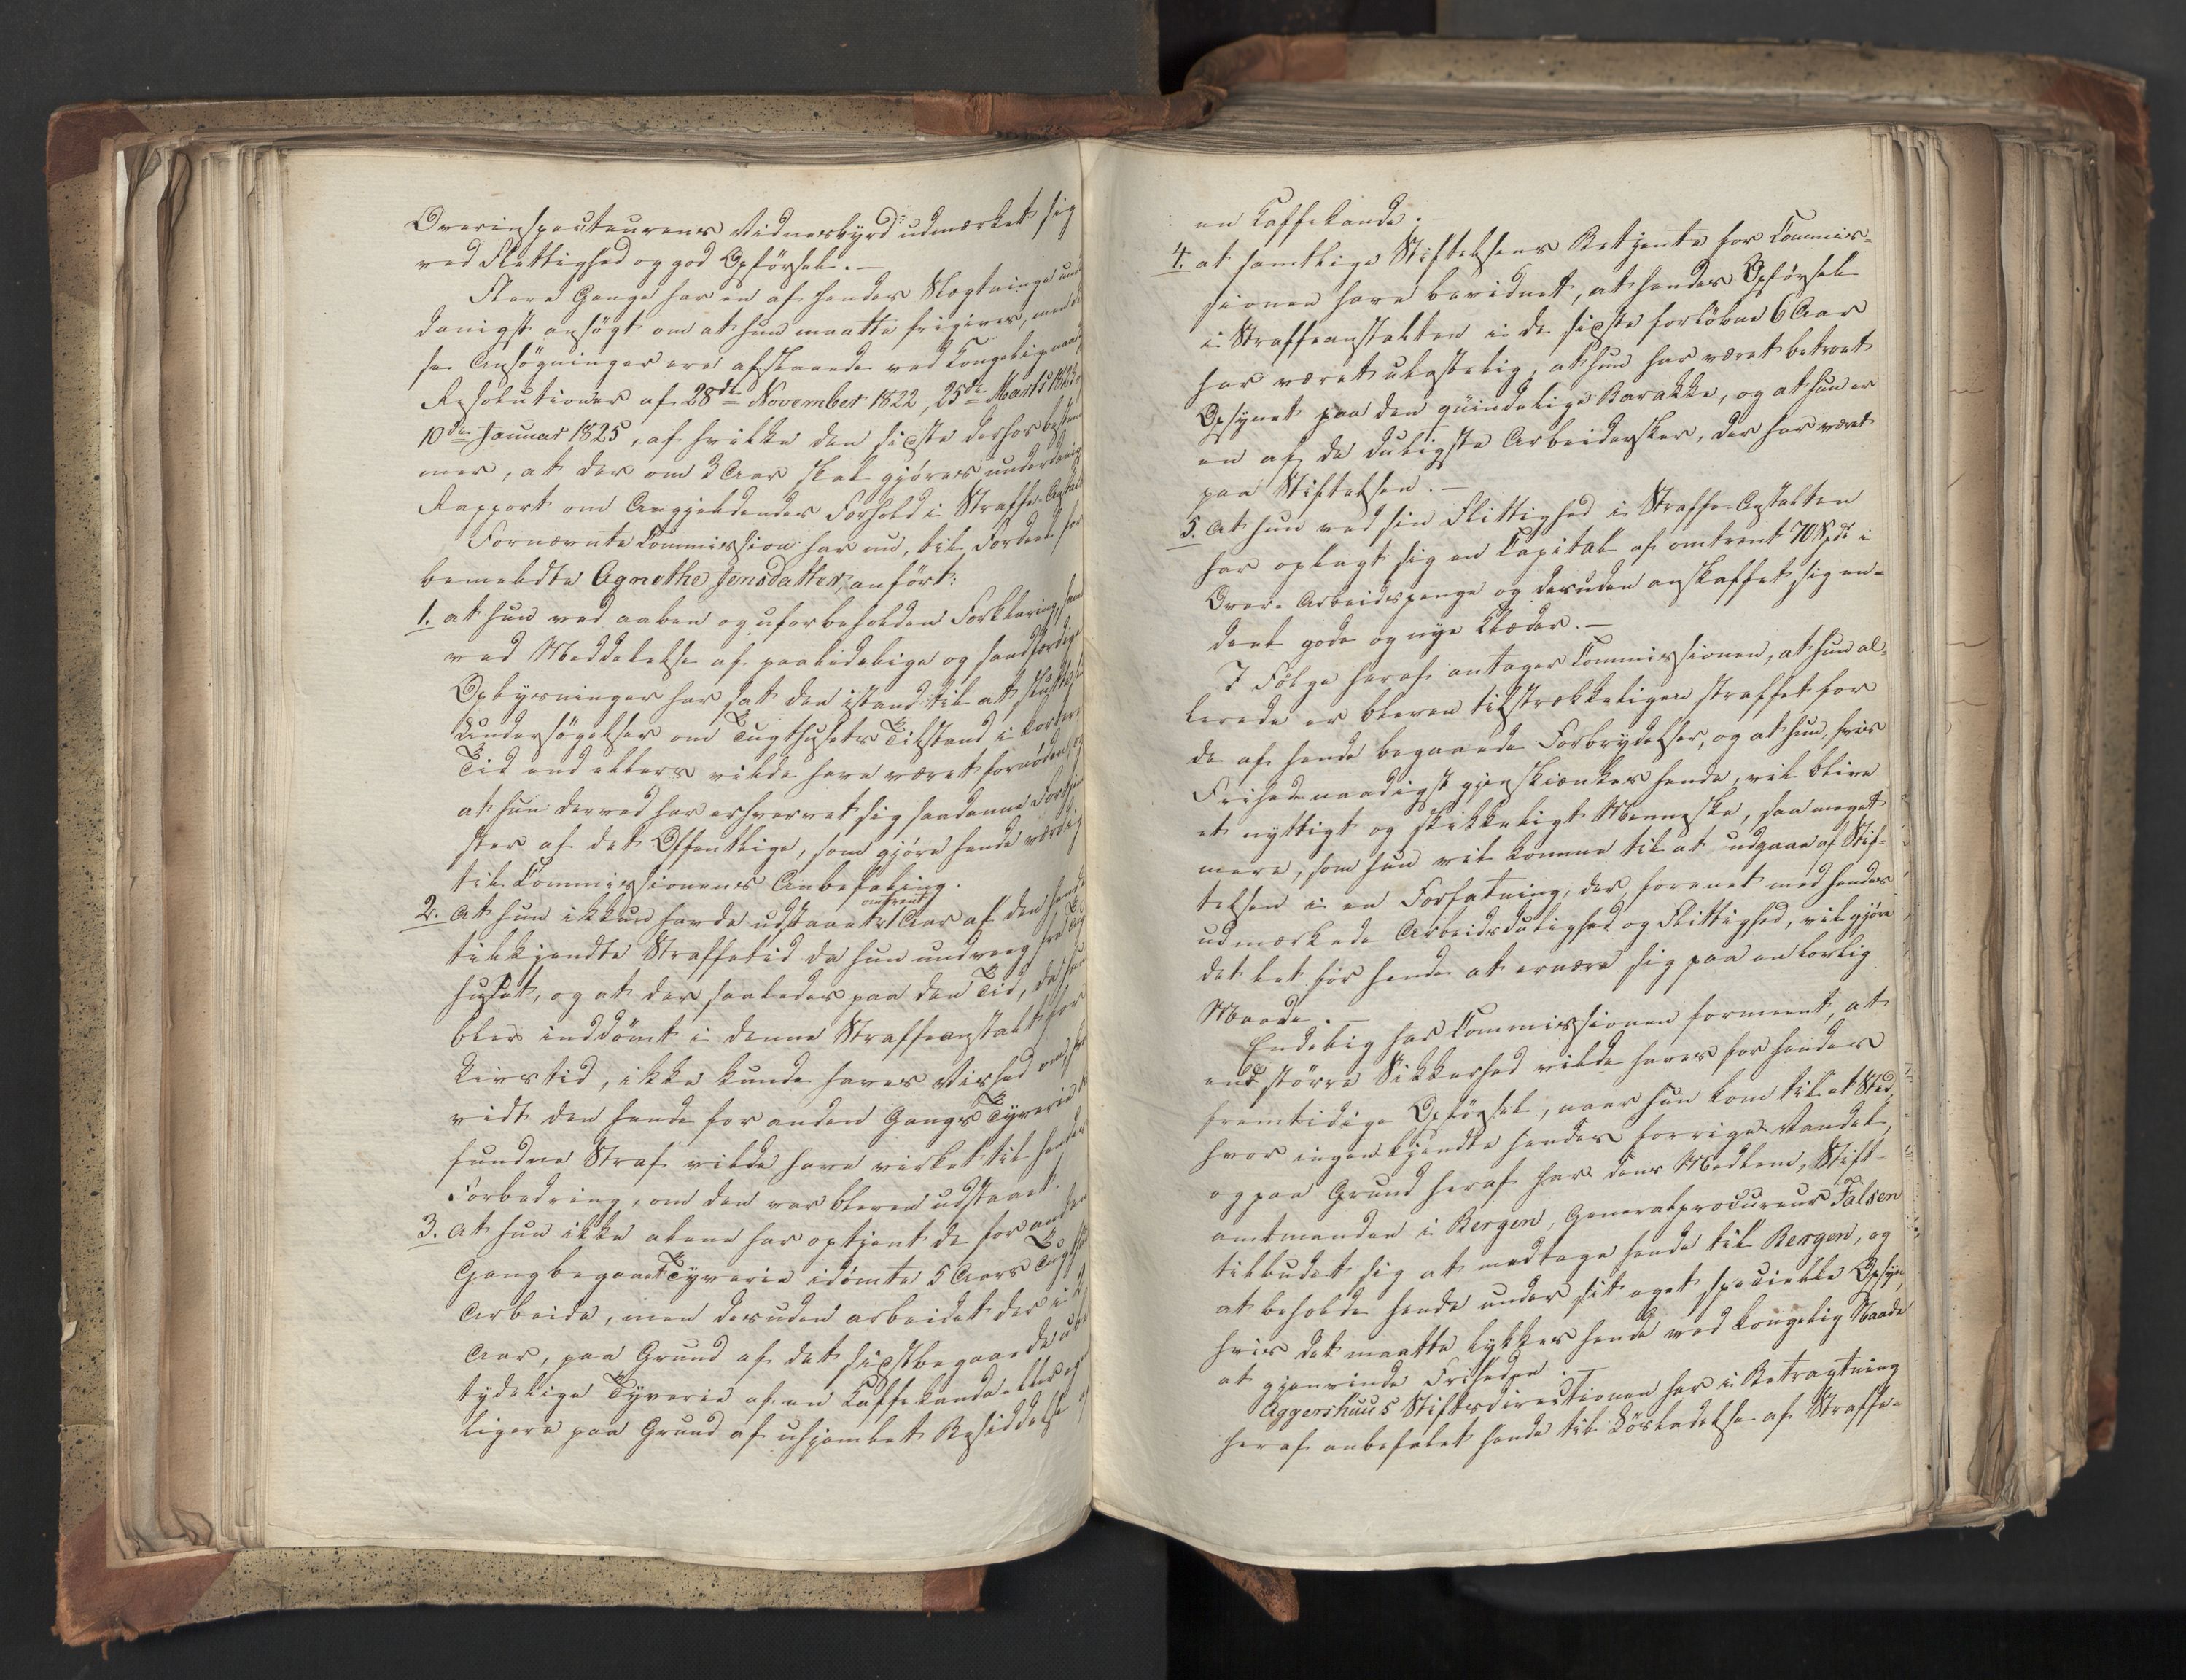 Overinspecteurens Vidnesbyrd udmærket sig
ved Flittighed og god Opførsel. —
Flere Gange har en af hendes Slægtninge un-
danigst ansøgt om at hun maatte frigives, men di-
se Ansøgninger ere afslaaede ved Kongelig naad
Resolutioner af 28de November 1822, 25de Marts 1823 o
10de Januar 1825, af hvilke den sidste derhos bestem
mer, at der om 3 Aar skal gjøres underdanig
Rapport om Angjeldendes Forhold i Straffe-Anstal
Fornævnte Commission har nu, til Fordeel for
bemeldte Agnethe Jensdatter, anført:
1. at hun ved aaben og uforbeholden Forklaring, sam
ved Meddelelse af paalidelige og sandfærdige
Oplysninger har sat den istand til at slutte si
Undersøgelser om Tugthusets Tilstand i korter
Tid end ellers vilde have været fornøden, og
at hun derved har erhvervet sig saadanne Fortjen
ster af det Offentlige, som gjøre hende værdig
til Commissionens Anbefaling.
2. At hun ikkun havde udstaaet omtrent 1 Aar af den hende
tilkjendte Straffetid da hun undveeg fra Tug
huset, og at der saaledes paa den Tid, da hun
blev inddømt i denne Straffeanstalt for
Livstid, ikke kunde haves Vished om, hvor
vidt den hende for anden Gangs Tyverie
fundne Straf vilde have virket til hendes
Forbedring, om den var bleven udstaaet.
3. At hun ikke alene har optjent de for anden
Gang begaaet Tyverie idømte 5 Aars Tugthu
Arbeide, men desuden arbeidet der i 2
Aar, paa Grund af det sidstbegaaede ube
tydelige Tyverie af en Kaffekande eller eg
ligere paa Grund af uhjemlet Besiddelse af
en Kaffekande. —
4. at samtlige Stiftelsens Betjente for Commis-
sionen have bevidnet, at hendes Opførsel
i Straffeanstalten i de sidste forløbne 6 Aar
har været ulastelig, at hun har været betroet
Opsynet paa den qvindelige Barakke, og at hun er
en af de duligste Arbeidersker, der har været
paa Stiftelsen. —
5. At hun ved sin Flittighed i Straffe-Anstalten
har oplagt sig en Capital af omtrent 70 Spd. i
Over-Arbeidspenge og desuden anskaffet sig en-
deel gode og nye Klæder. —
I Følge heraf antager Commissionen, at hun al-
lerede er bleven tilstrækkeligen straffet for
de af hende begaaede Forbrydelser, og at hun, hvis
Frihed naadigst gjenskiænkes hende, vil blive
et nyttigt og skikkeligt Menneske, saa meget
mere, som hun vil komme til at udgaae af Stif-
telsen i en Forfatning, der, forenet med hendes
udmærkede Arbeidsdulighed og Flittighed, vil gjøre
det let for hende at ernære sig paa en lovlig
Maade. —
Endelig har Commissionen formeent, at
end større Sikkerhed vilde haves for hendes
fremtidige Opførsel, naar hun kom til et Sted,
hvor ingen kjendte hendes forrige Vandel,
og paa Grund heraf har dens Medlem, Stift-
amtmanden i Bergen, Generalprocureur Falsen
tilbudet sig at medtage hende til Bergen, og
at beholde hende under sit eget specielle Opsyn,
hvis det maatte lykkes hende ved Kongelig Naade
at gjenvinde Friheden. —
Aggershuus Stiftsdirectionen har i Betragtning
heraf anbefalet hende til Løsladelse af Straffe-